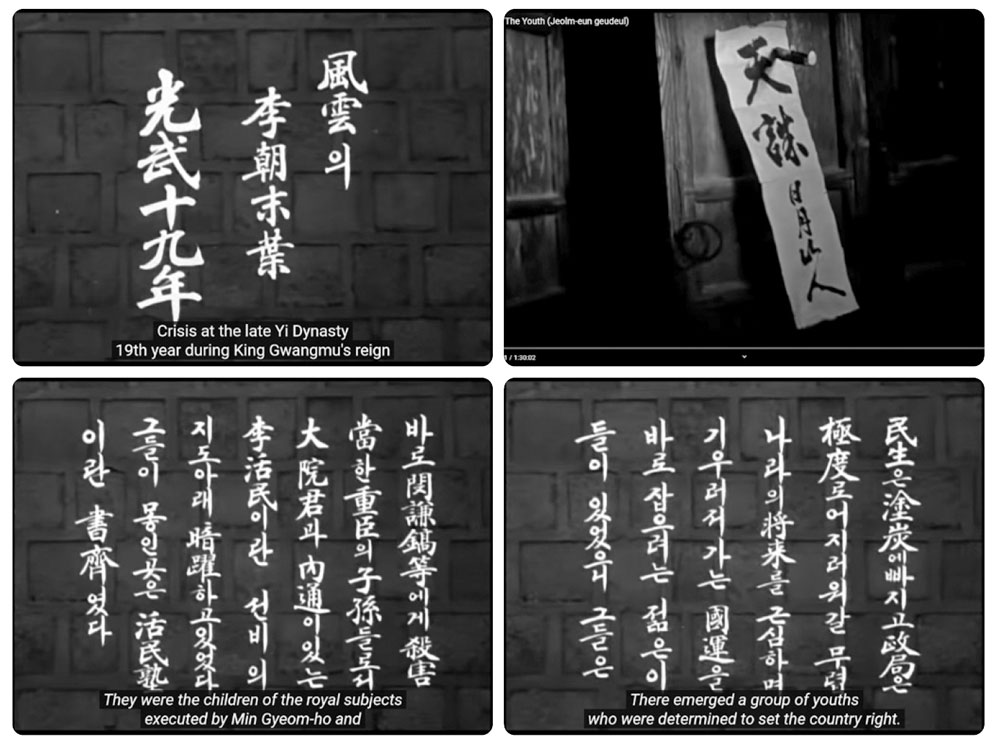 風雲의
李朝末葉
光武十九年
Crisis at the late Yi Dynasty
19th year during King Gwangmu's reign
The Youth (Jeolm-eun geudeul)
天誅 日月山人
1 / 1:30:02
바로閔謙鎬等에게殺害
當한重臣의子孫들로되
大院君과 內通이있는
李活民이란 선비의
지도아래 暗躍하고있었다
그들이 뫃인곳은 活民塾
이란 書齊였다
They were the children of the royal subjects
executed by Min Gyeom-ho and
民生은塗炭에빠지고政局은
極度로어지러워갈 무렵
나라의將来를 근심하며
기우러저가는 國運을
바로잡으려는 젊은이
들이 있었으니 그들은
There emerged a group of youths
who were determined to set the country right.